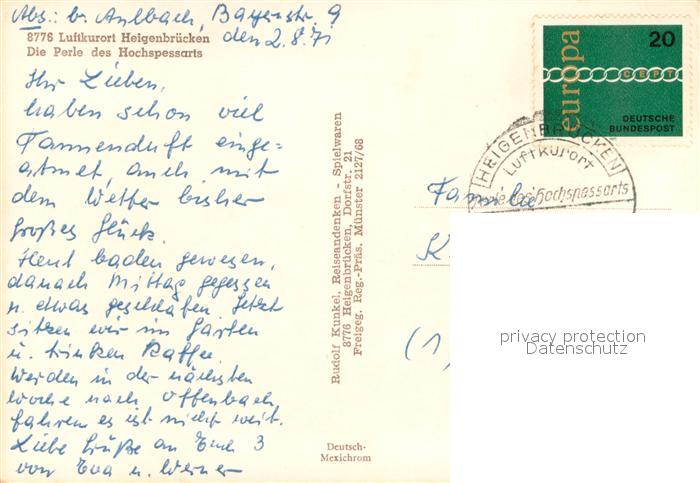 Abs: b. Aulbach, Bayernstr. 9
8776 Luftkurort Heigenbrücken
Die Perle des Hochspessarts
den 2.8.71
Ihr Lieben,
haben schon viel
Tannenduft einge=
atmet, auch mit
dem Wetter bisher
großes Glück.
Heut baden gewesen,
danach Mittag gegessen
u. etwas geschlafen. Jetzt
sitzen wir im Garten
u. trinken Kaffee.
Werden in der nächsten
Woche nach Offenbach
fahren es ist nicht weit.
Liebe Grüße an Euch 3
von Eva u. Werner
Rudolf Kunkel, Reiseandenken - Spielwaren
8776 Heigenbrücken, Dorfstr. 21
Freigeg. Reg.-Präs. Münster 2127/68
Deutsch-
Mexichrom
europa
20
CEPT
DEUTSCHE
BUNDESPOST
HEIGENBRÜCKEN
Luftkurort
Perle des Hochspessarts
Familie
K
(1)
privacy protection
Datenschutz